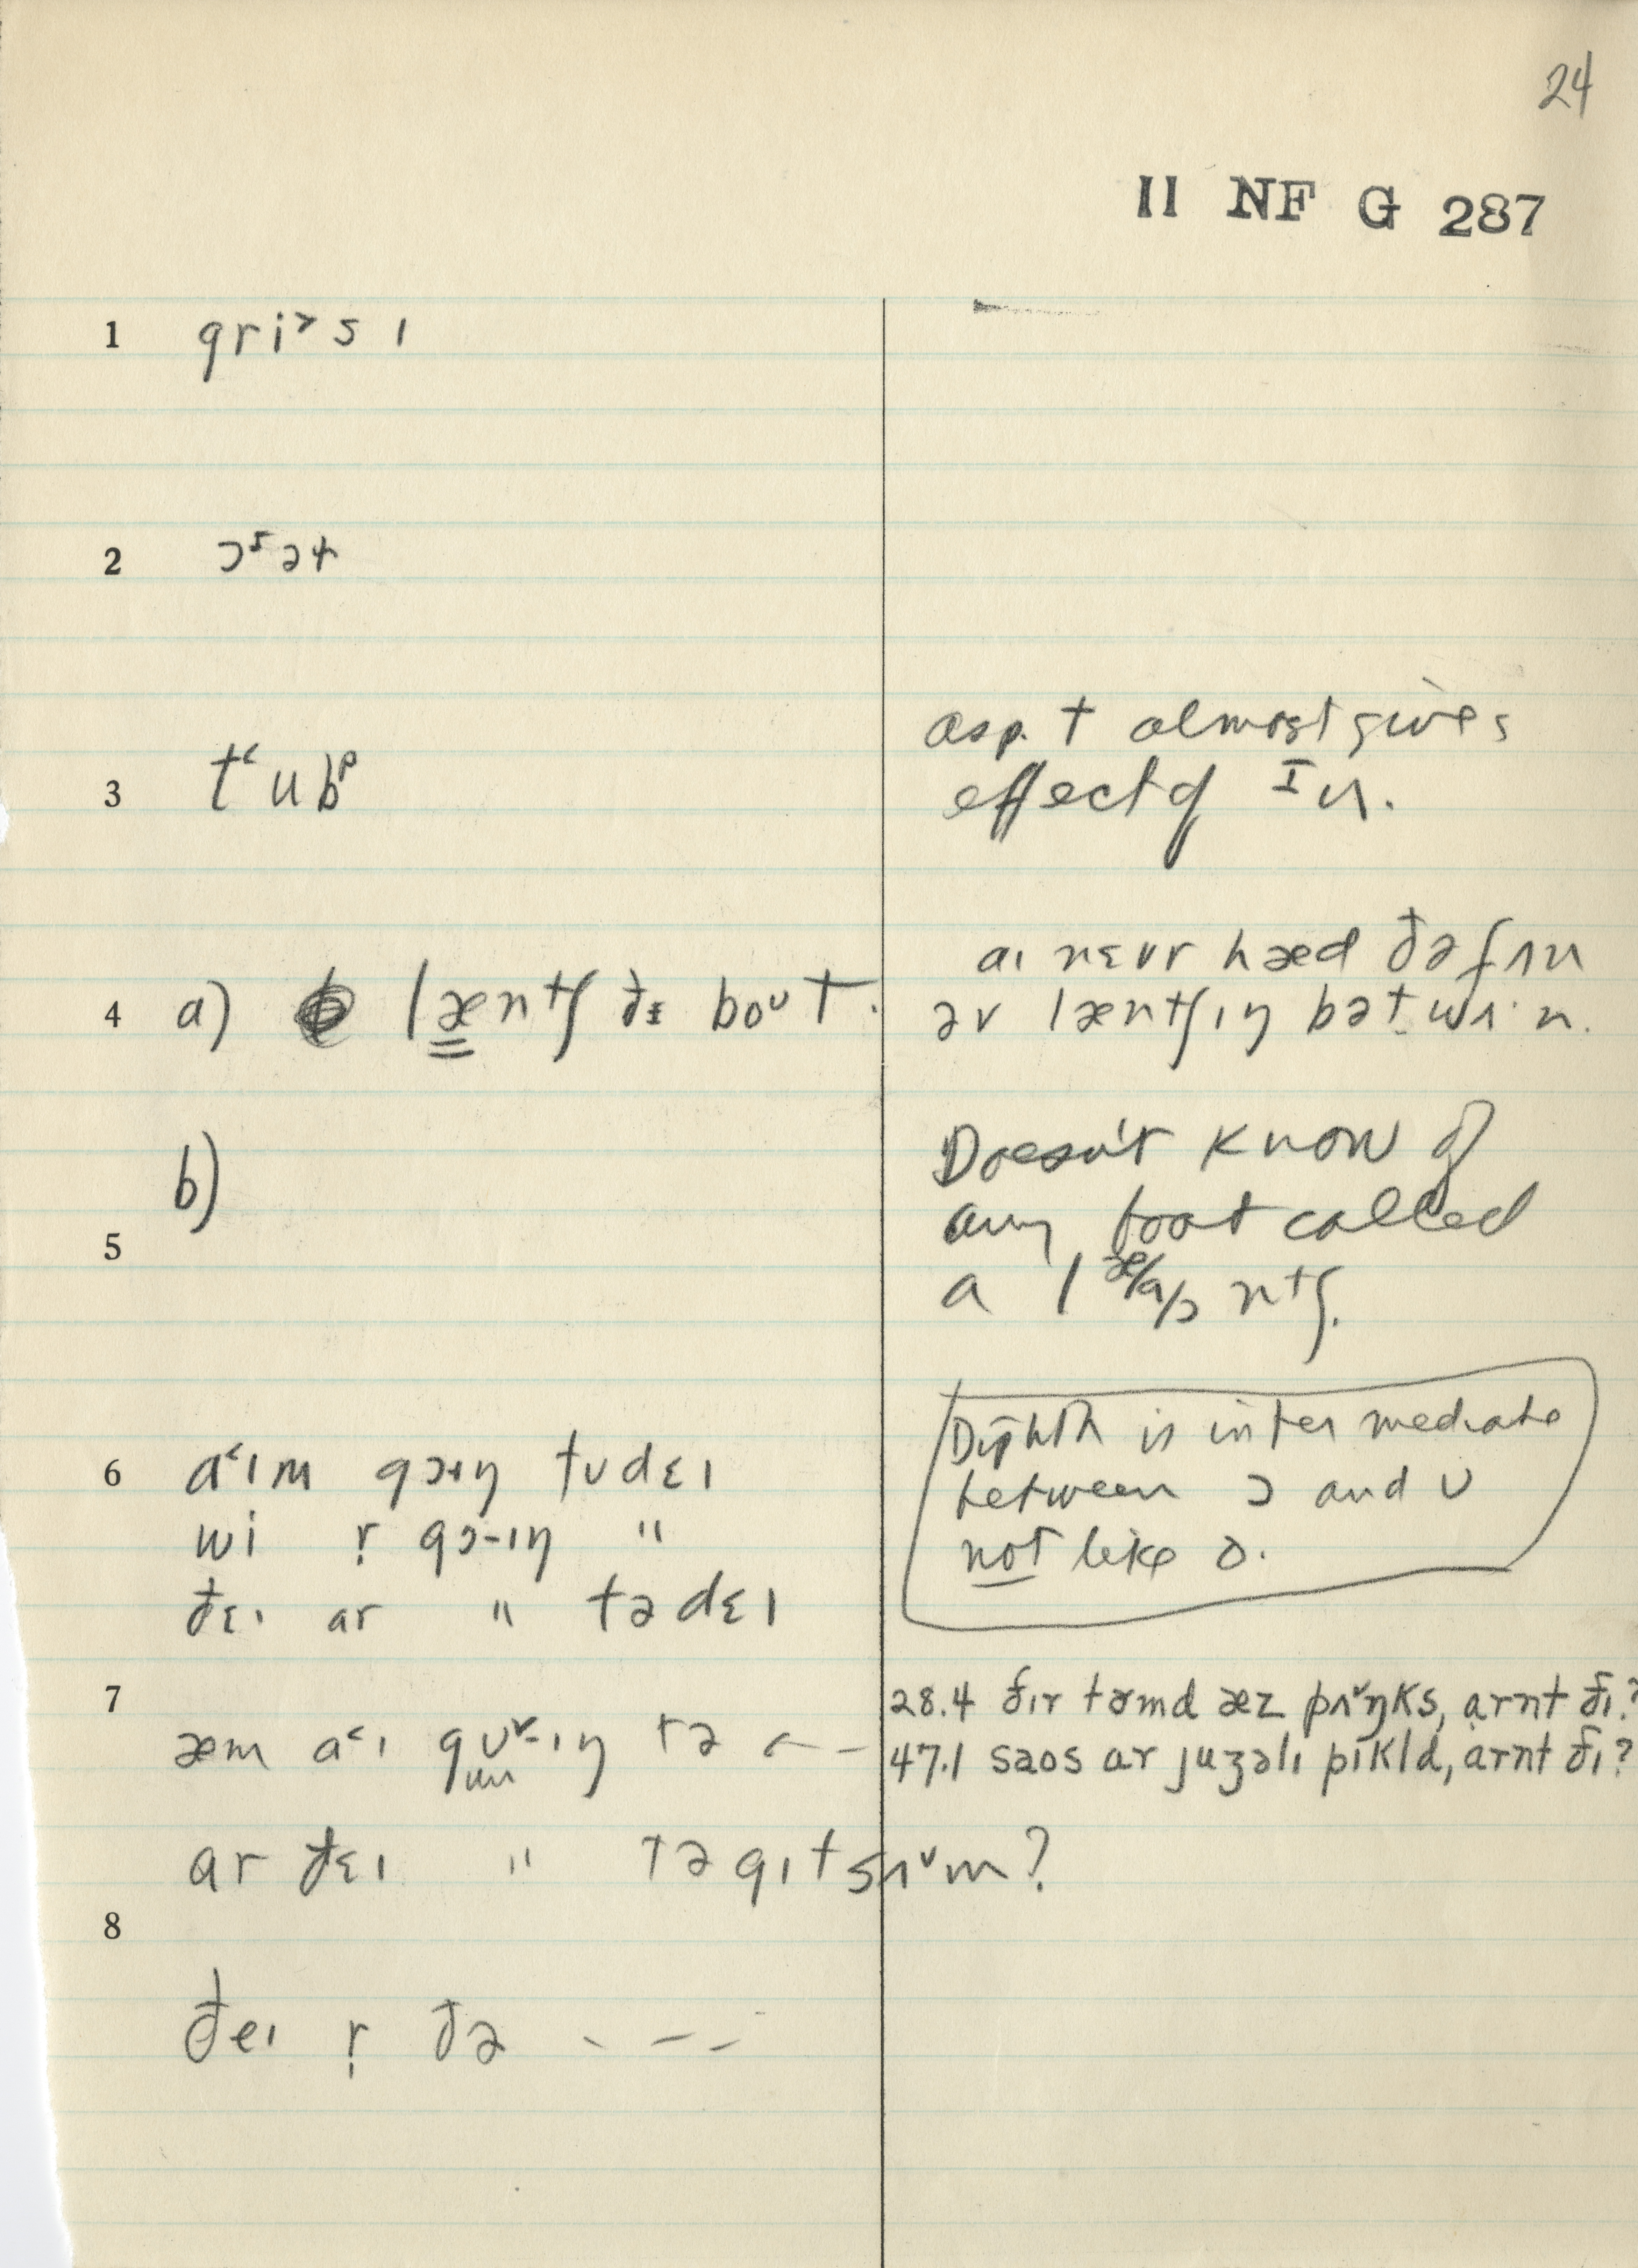 24
II NF G 287
1 gri˃sɪ
2 ɔ˞əɫ
3 t‘ubᵖ
asp. t almost gives
effect of ɪu.
4 a) læntʃ ðɪ boᴜt.
aɪ nɛvr hæd ðə fʌn
əv læntʃɪŋ bət wʌ·n.
b)
5
Doesn't know of
any boat called
a l æ/a/ɔ ntʃ.
6 a˂ɪm gɔɪŋ tʊdɛɪ
wi r̩ gɔ-ɪŋ "
ðɛɪ ar " tədɛɪ
Diphth is intermediate
between ɔ and ʊ
not like o.
7 æm a˂ɪ gʊ˅-ɪŋ tə
28.4 ðɪr tɜmd æz pʌ˅ŋks, arnt ðɪ?
47.1 saos ar juʒəlɪ pɪkld, arnt ðɪ?
ar ðɛɪ " tə gɪt sʌ˅m?
8
ðeɪ r̩ ðə - - -